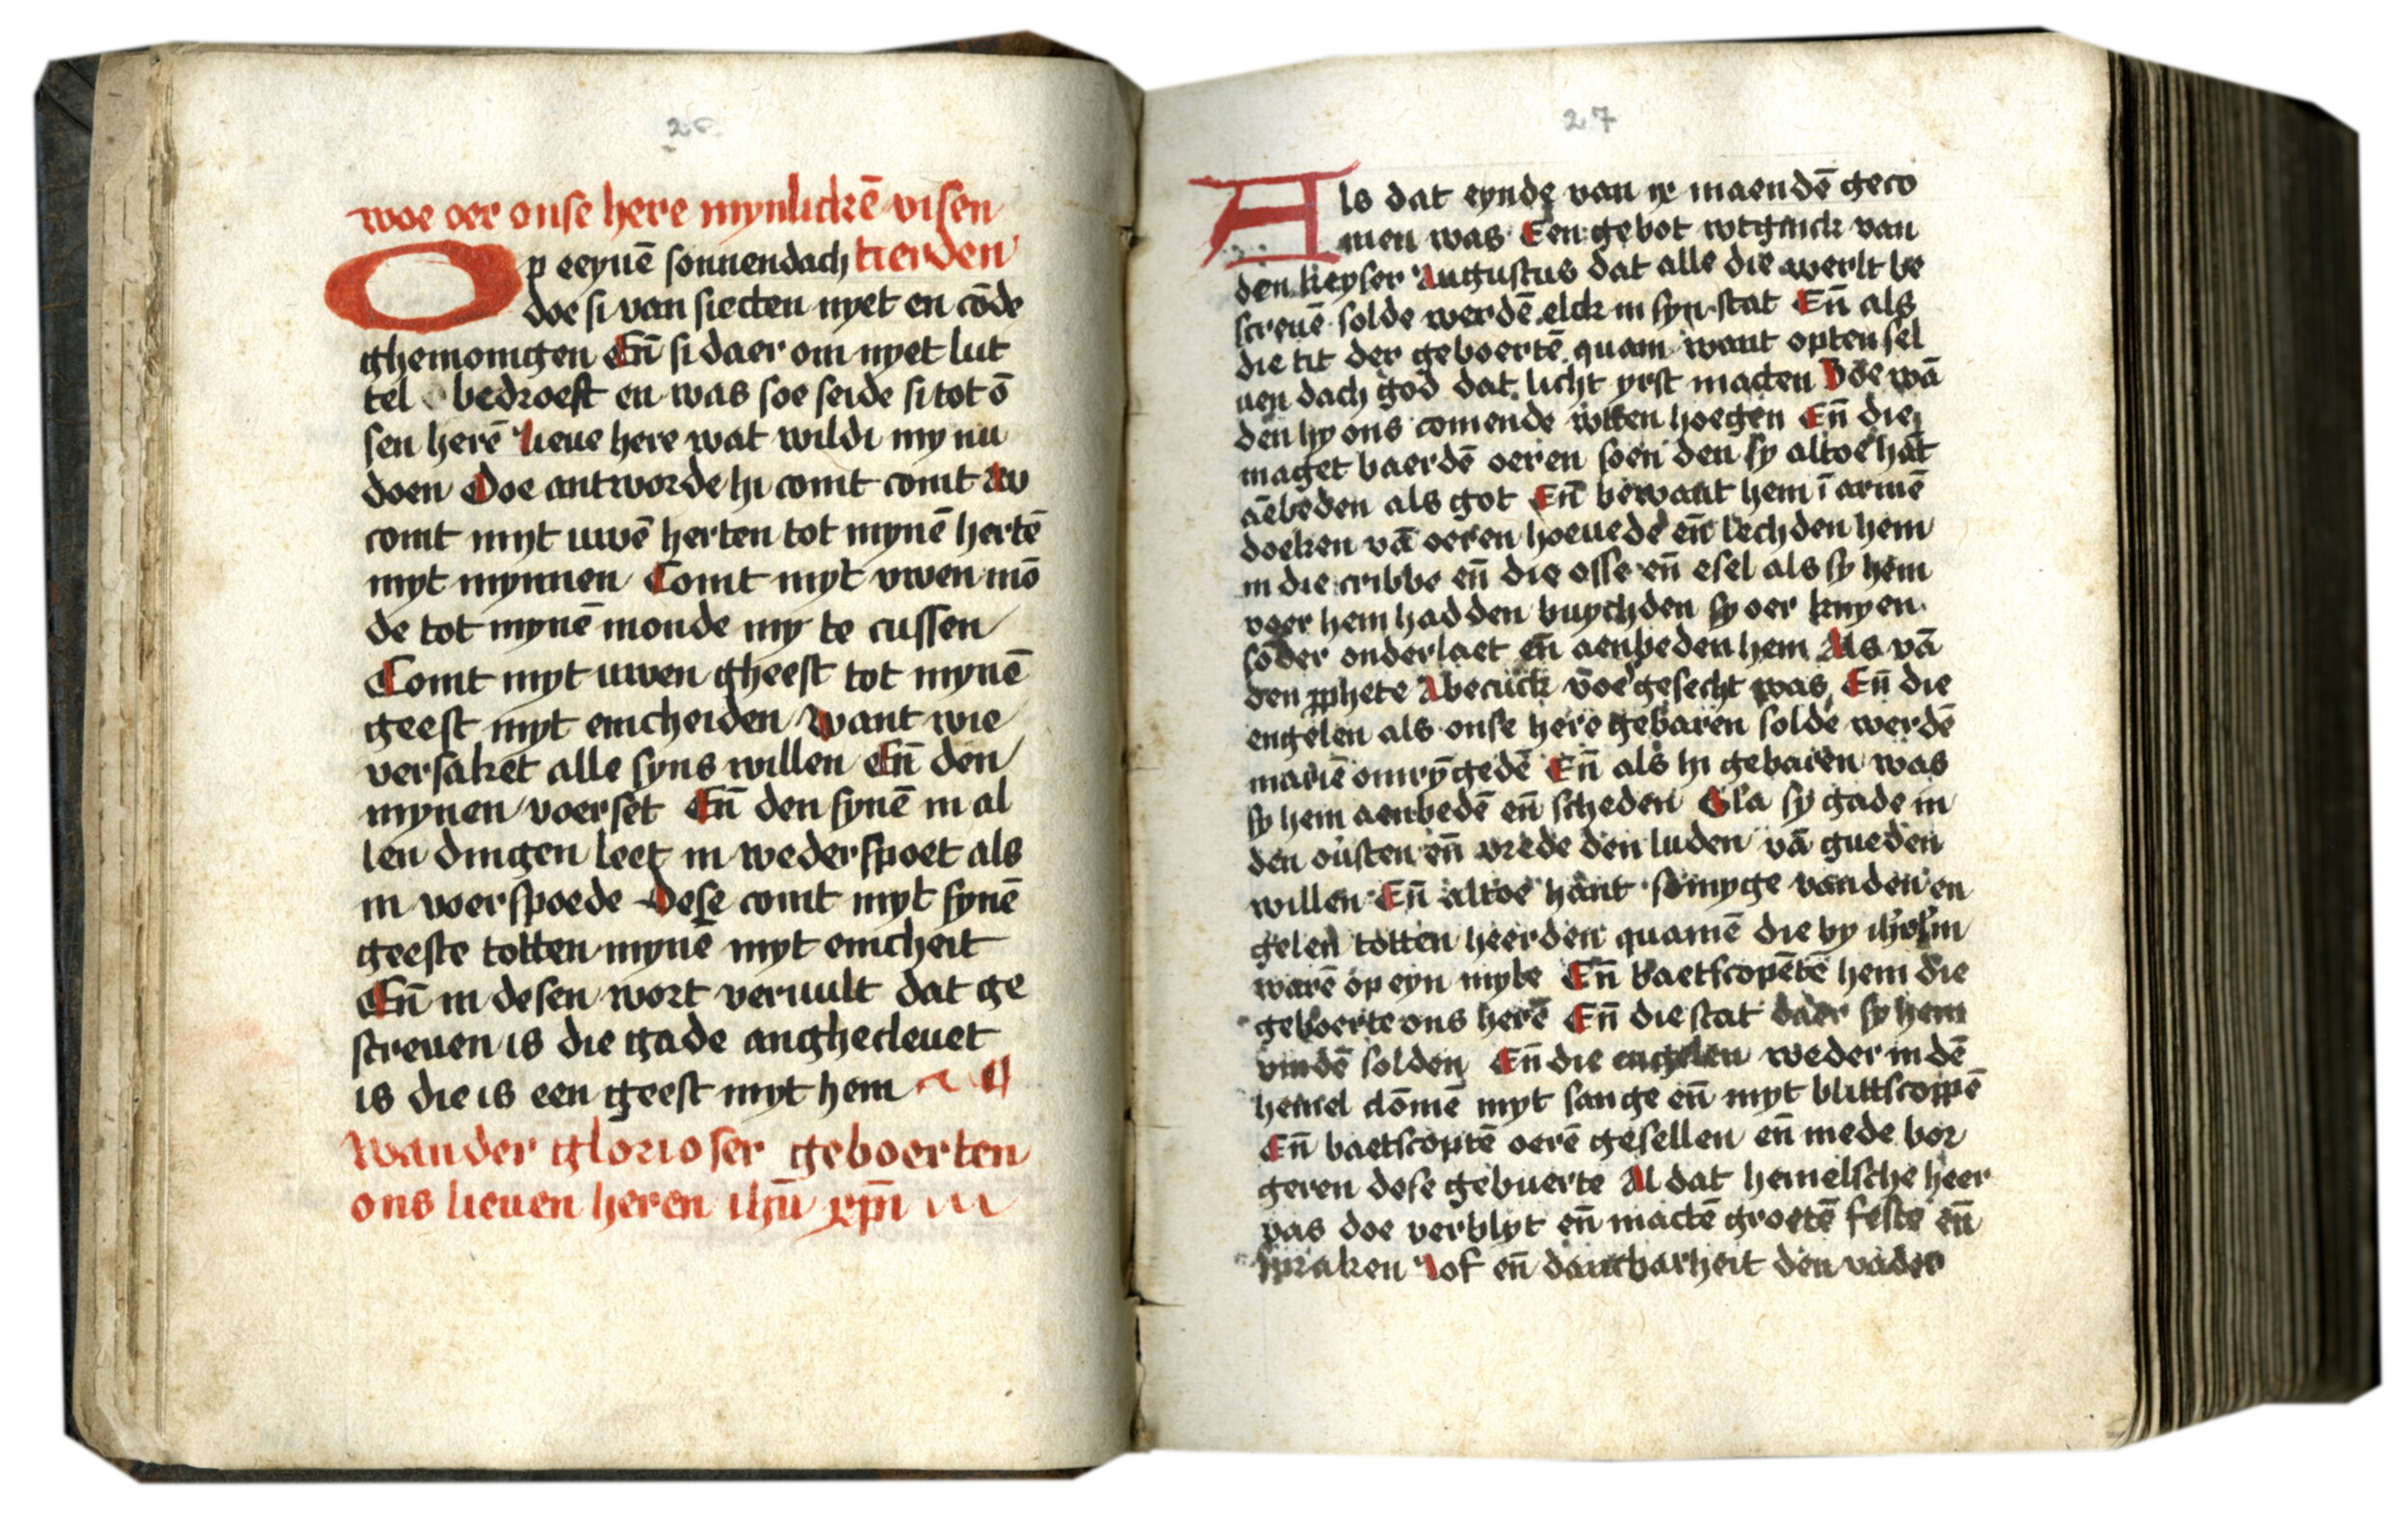 26
woe oer onse here mynlickē visen
Op eeynē sonnendach tierden
doe si van siecten nyet en cōde
ghemonigen Eñ si daer om nyet lut
tel bedroeft en was soe seide si tot ō
sen herē lieue here wat wildi my nu
doen Doe antworde hi comt comt
comt myt uwē herten tot mynē hertē
myt mynnen Comt myt vwen mō
de tot mynē monde my te cussen
Comt myt uwen gheest tot mynē
geest myt enicheiden Want wie
versaket alle syns willen Eñ den
mynen voerset Eñ den synē in al
len dingen leet in wederspoet als
in voerspoede Dese comt myt synē
geeste totten mynē myt enicheit
Eñ in desen wort veruult dat ge
screuen is die gade anghecleuet
is die is een geest myt hem
Van der glorioser geboerten
ons lieuen heren ihū xp̄i
27
Als dat eynde van ix maendē geco
men was Een gebot wtginck van
den keyser Augustus dat alle die werlt be
screuē solde werdē elck in syn stat Eñ als
die tit der geboertē quam want opten sel
uen dach god dat licht yrst macten Doe wā
den hy ons comende wtten hoegen Eñ die
maget baerdē oeren soen den sy altoe hāt
aēbeden als got Eñ bewant hem ī armē
doeken vā oeren hoeuede eñ lechden hem
in die cribbe eñ die osse eñ esel als sy hem
voer hem hadden buychden sy oer knyen
sōder onderlaet eñ aenbeden hem Als vā
den pphete Abecuck voe gesecht was Eñ die
engelen als onse here gebaren solde werdē
mariē omrȳgedē Eñ als hi gebaren was
sy hem aenbedē eñ scheden Gla sy gade in
den ousten eñ vrede den luden vā gueden
willen Eñ altoe hant somyge van den en
gelen totten heerden quamē die by ihrlm
warē op eyn myle Eñ baetscopētē hem die
geboerte ons herē Eñ die stat daer sy hem
vindē solden Eñ die engelen weder in dē
hemel clōmē myt sange eñ myt blittscoppē
Eñ baetscoptē oerē gesellen eñ mede bor
geren dese gebuerte Al dat hemelsche heer
was doe verblyt eñ mactē groetē feste eñ
spraken lof eñ dancbarheit den vader